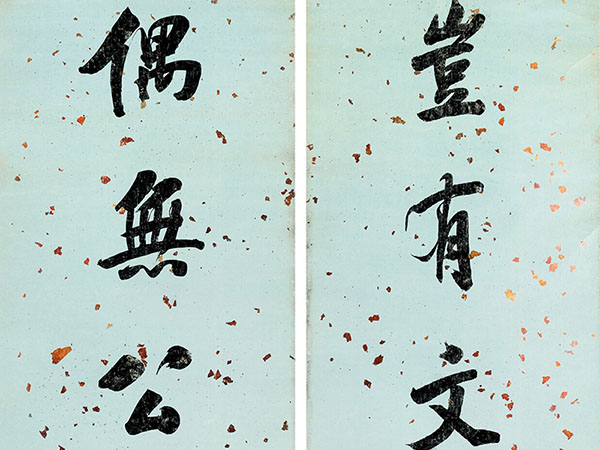 豈有文
偶無公